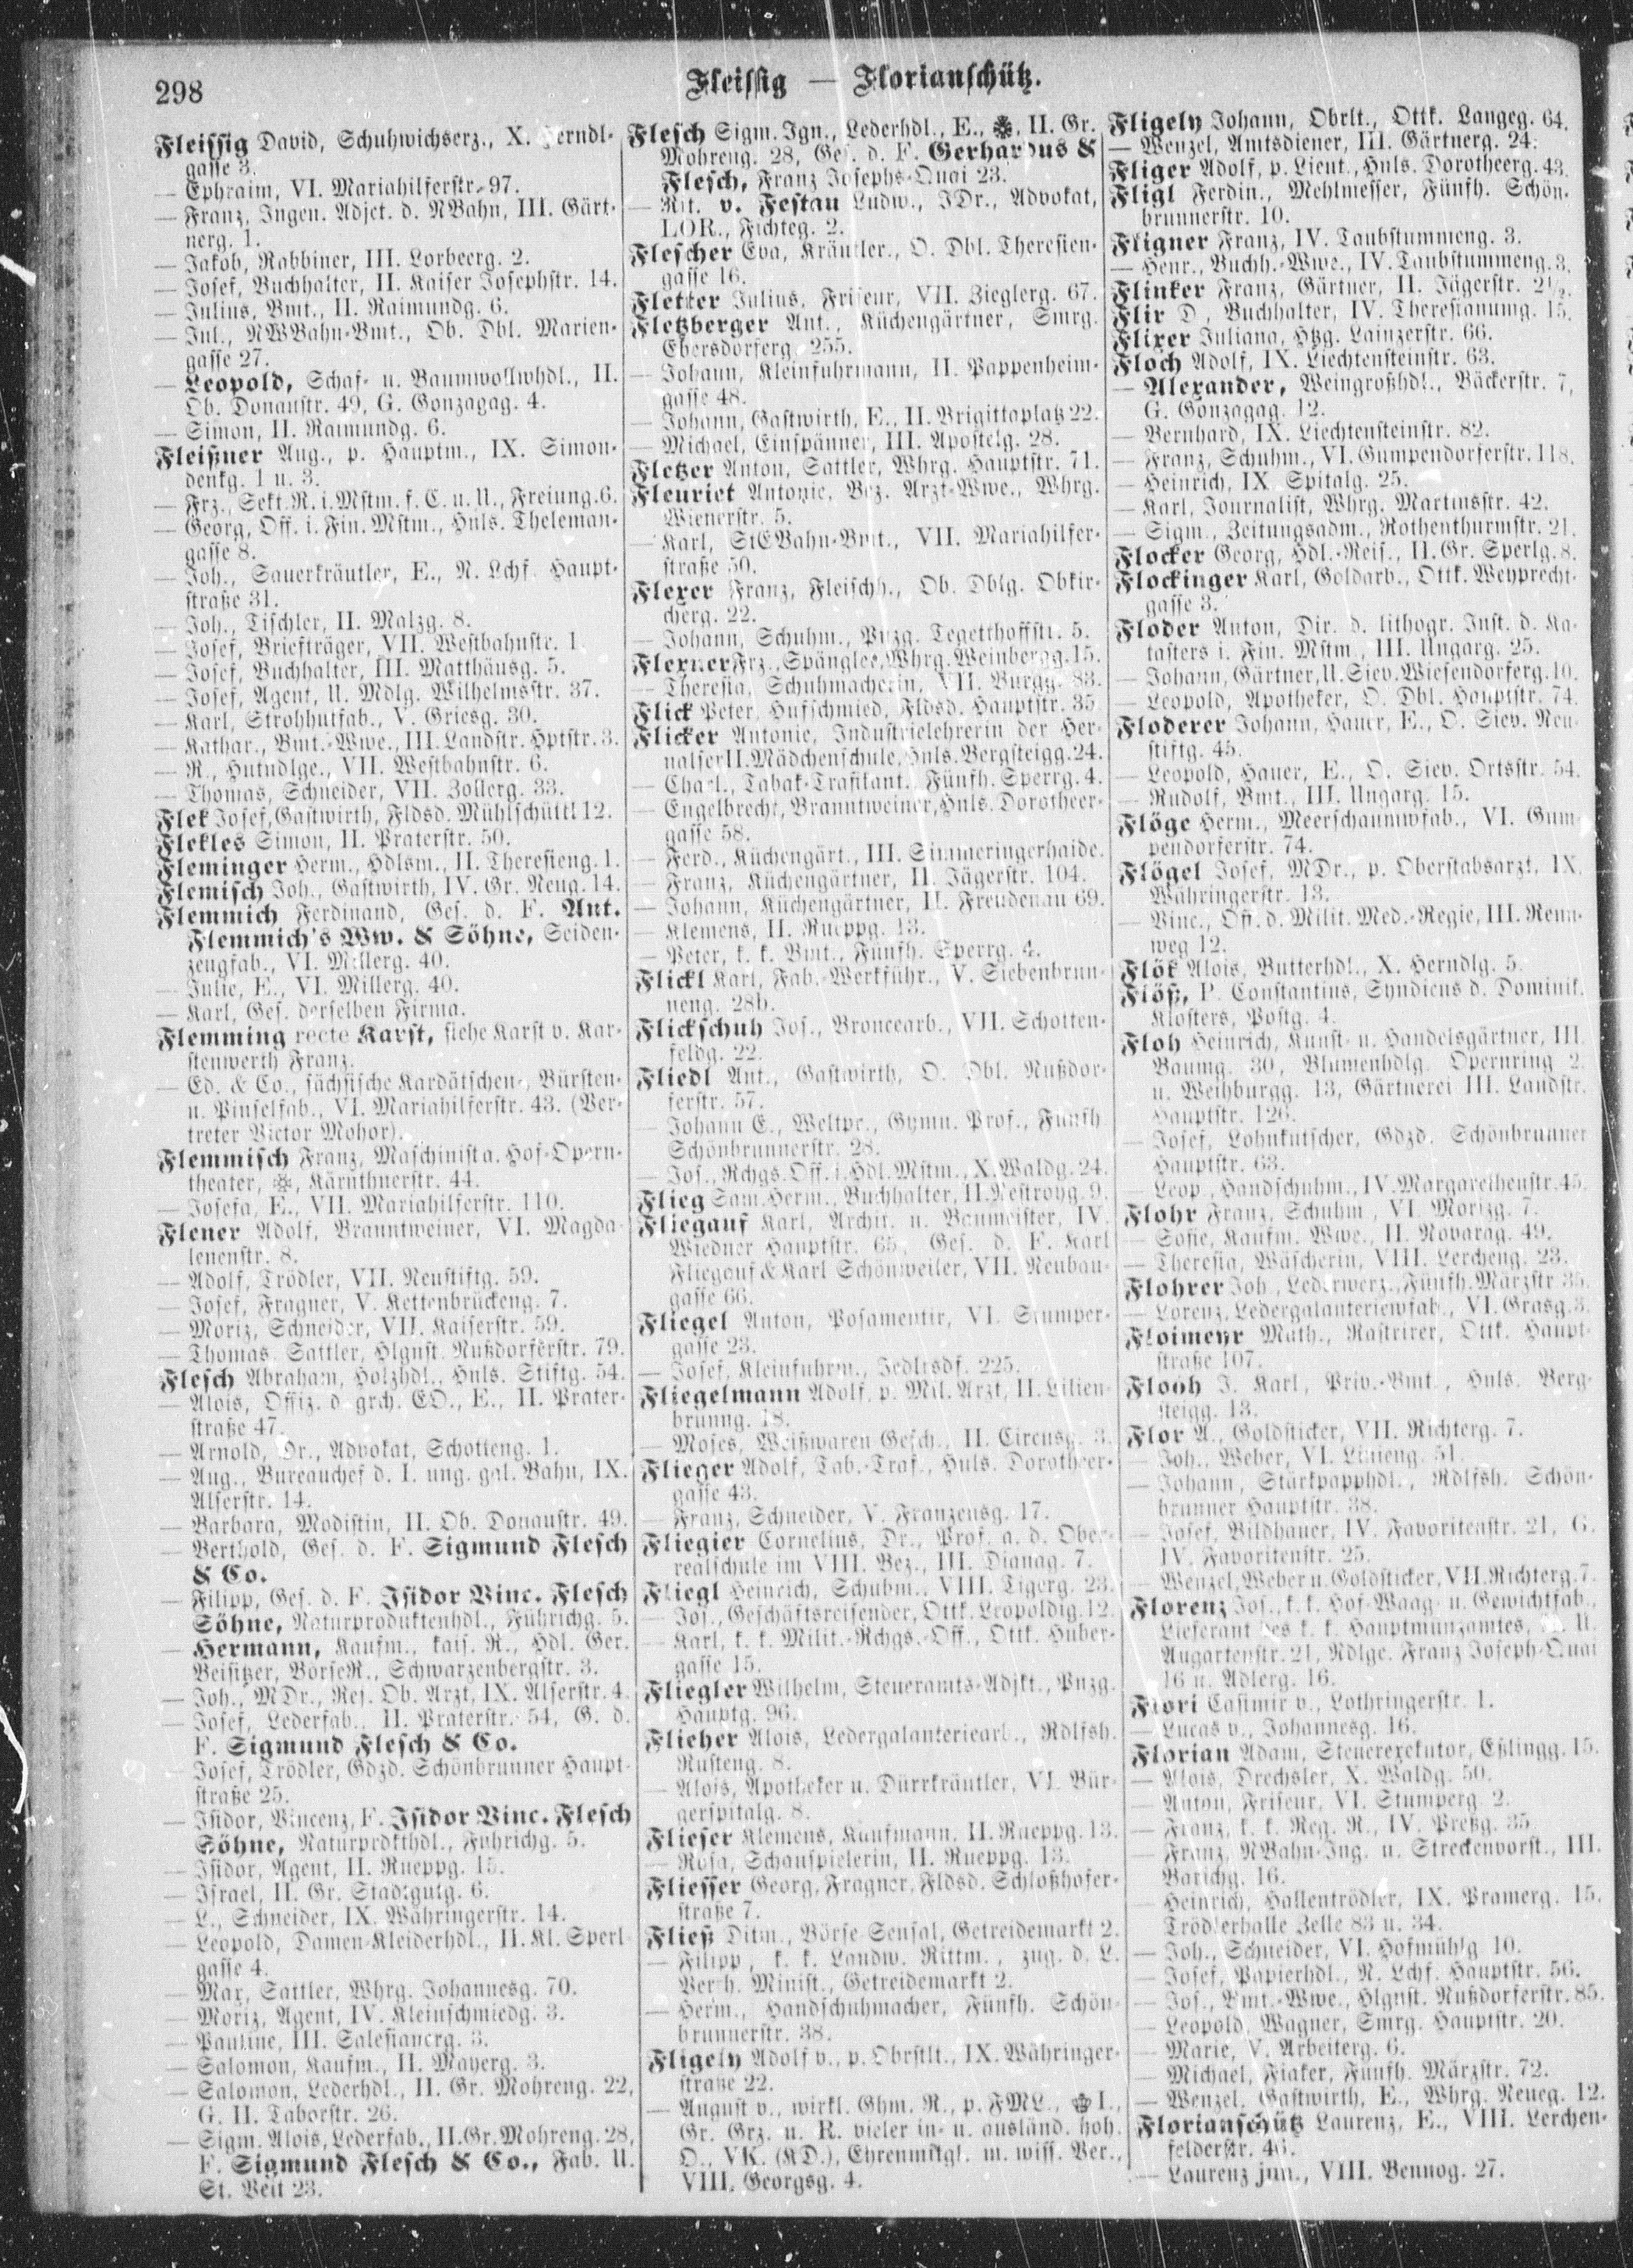 298
Fleissig — Florianschütz.
Fleissig David, Schuhwichserz., X. Herndl-
gasse 3.
— Ephraim, VI. Mariahilferstr. 97.
— Franz, Ingen. Adjct. d. NBahn, III. Gärt-
nerg. 1.
— Jakob, Rabbiner, III. Lorbeerg. 2.
— Josef, Buchhalter, II. Kaiser Josephstr. 14.
— Julius, Bmt., II. Raimundg. 6.
— Jul., NWBahn-Bmt., Ob. Dbl. Marien-
gasse 27.
— Leopold, Schaf- u. Baumwollwhdl., II.
Ob. Donaustr. 49, G. Gonzagag. 4.
— Simon, II. Raimundg. 6.
Fleißner Aug., p. Hauptm., IX. Simon-
denkg. 1 u. 3.
— Frz., Sekt.R. i. Mstm. f. C. u. U., Freiung. 6.
— Georg, Off. i. Fin. Mstm., Hnls. Theleman-
gasse 8.
— Joh., Sauerkräutler, E., N. Lchf. Haupt-
straße 31.
— Joh., Tischler, II. Malzg. 8.
— Josef, Briefträger, VII. Westbahnstr. 1.
— Josef, Buchhalter, III. Matthäusg. 5.
— Josef, Agent, U. Mdlg. Wilhelmsstr. 37.
— Karl, Strohhutfab., V. Griesg. 30.
— Kathar., Bmt.-Wwe., III. Landstr. Hptstr. 3.
— R., Hutndlge., VII. Westbahnstr. 6.
— Thomas, Schneider, VII. Zollerg. 33.
Flek Josef, Gastwirth, Fldsd. Mühlschüttl 12.
Flekles Simon, II. Praterstr. 50.
Fleminger Herm., Hdlsm., II. Theresieng. 1.
Flemisch Joh., Gastwirth, IV. Gr. Neug. 14.
Flemmich Ferdinand, Ges. d. F. Ant.
Flemmich's Ww. & Söhne, Seiden-
zeugfab., VI. Millerg. 40.
— Julie, E., VI. Millerg. 40.
— Karl, Ges. derselben Firma.
Flemming recte Karst, siehe Karst v. Kar-
stenwerth Franz.
— Ed. & Co., sächsische Kardätschen-, Bürsten-
u. Pinselfab., VI. Mariahilferstr. 43. (Ver-
treter Victor Mohor).
Flemmisch Franz, Maschinist a. Hof-Opern-
theater, Kärnthnerstr. 44.
— Josefa, E., VII. Mariahilferstr. 110.
Flener Adolf, Branntweiner, VI. Magda-
lenenstr. 8.
— Adolf, Trödler, VII. Neustiftg. 59.
— Josef, Fragner, V. Kettenbrückeng. 7.
— Moriz, Schneider, VII. Kaiserstr. 59.
— Thomas, Sattler, Hlgnst. Nußdorferstr. 79.
Flesch Abraham, Holzhdl., Hnls. Stiftg. 54.
— Alois, Offiz. d. grch. CO., E., II. Prater-
straße 47.
— Arnold, Dr., Advokat, Schotteng. 1.
— Aug., Bureauchef d. I. ung. gal. Bahn, IX.
Alserstr. 14.
— Barbara, Modistin, II. Ob. Donaustr. 49.
— Berthold, Ges. d. F. Sigmund Flesch
& Co.
— Filipp, Ges. d. F. Isidor Vinc. Flesch
Söhne, Naturproduktenhdl., Führichg. 5.
— Hermann, Kaufm., kais. R., Hdl. Ger.
Beisitzer, BörseR., Schwarzenbergstr. 3.
— Joh., MDr., Res. Ob. Arzt, IX. Alserstr. 4.
— Josef, Lederfab., II. Praterstr. 54, G. d.
F. Sigmund Flesch & Co.
— Josef, Trödler, Gdzd. Schönbrunner Haupt-
straße 25.
— Isidor, Vincenz, F. Isidor Vinc. Flesch
Söhne, Naturprdkthdl., Führichg. 5.
— Isidor, Agent, II. Rueppg. 15.
— Israel, II. Gr. Stadtgutg. 6.
— L., Schneider, IX. Währingerstr. 14.
— Leopold, Damen-Kleiderhdl., II. Kl. Sperl-
gasse 4.
— Max, Sattler, Whrg. Johannesg. 70.
— Moriz, Agent, IV. Kleinschmiedg. 3.
— Pauline, III. Salesianerg. 3.
— Salomon, Kaufm., II. Mayerg. 3.
— Salomon, Lederhdl., II. Gr. Mohreng. 22,
G. II. Taborstr. 26.
— Sigm. Alois, Lederfab., II. Gr. Mohreng. 28,
F. Sigmund Flesch & Co., Fab. U.
St. Veit 23.
Flesch Sigm. Ign., Lederhdl., E., II. Gr.
Mohreng. 28, Ges. d. F. Gerhardus &
Flesch, Franz Josephs-Quai 23.
— Rit. v. Festau Ludw., JDr., Advokat,
LOR., Fichteg. 2.
Flescher Eva, Kräutler., O. Dbl. Theresien-
gasse 16.
Fletter Julius, Friseur, VII. Zieglerg. 67.
Fletzberger Ant., Küchengärtner, Smrg.
Ebersdorferg. 255.
— Johann, Kleinfuhrmann, II. Pappenheim-
gasse 48.
— Johann, Gastwirth, E., II. Brigittaplatz 22.
— Michael, Einspänner, III. Apostelg. 28.
Fletzer Anton, Sattler, Whrg. Hauptstr. 71.
Fleuriet Antonie, Bez. Arzt-Wwe., Whrg.
Wienerstr. 5.
— Karl, StEBahn-Bmt., VII. Mariahilfer-
straße 50.
Flexer Franz, Fleischh., Ob. Dblg. Obkir-
cherg. 22.
— Johann, Schuhm., Pnzg. Tegetthoffstr. 5.
Flexner Frz., Spängler, Whrg. Weinbergg. 15.
— Theresia, Schuhmacherin, VII. Burgg. 83.
Flick Peter, Hufschmied, Fldsd. Hauptstr. 35.
Flicker Antonie, Industrielehrerin der Her-
nalser II. Mädchenschule, Hnls. Bergsteigg. 24.
— Charl., Tabak-Trafikant., Fünfh. Sperrg. 4.
— Engelbrecht, Branntweiner, Hnls. Dorotheer-
gasse 58.
— Ferd., Küchengärt., III. Simmeringerhaide.
— Franz, Küchengärtner, II. Jägerstr. 104.
— Johann, Küchengärtner, II. Freudenau 69.
— Klemens, II. Rueppg. 13.
— Peter, k. k. Bmt., Fünfh. Sperrg. 4.
Flickl Karl, Fab.-Werkführ., V. Siebenbrun-
neng. 28b.
Flickschuh Jos., Broncearb., VII. Schotten-
feldg. 22.
Fliedl Ant., Gastwirth, O. Dbl. Nußdor-
ferstr. 57.
— Johann E., Weltpr., Gymn. Prof., Fünfh.
Schönbrunnerstr. 28.
— Jos., Rchgs. Off. i. Hdl. Mstm., X. Waldg. 24.
Flieg Sam. Herm., Buchhalter, II. Nestroyg. 9.
Fliegauf Karl, Archit. u. Baumeister, IV.
Wiedner Hauptstr. 65, Ges. d. F. Karl
Fliegauf & Karl Schönweiler, VII. Neubau-
gasse 66.
Fliegel Anton, Posamentir, VI. Stumper-
gasse 23.
— Josef, Kleinfuhrm., Jedlesdf. 225.
Fliegelmann Adolf, p. Mil. Arzt, II. Lilien-
brunng. 18.
— Moses, Weißwaren-Gesch., II. Circusg. 3.
Flieger Adolf, Tab.-Traf., Hnls. Dorotheer-
gasse 43.
— Franz, Schneider, V. Franzensg. 17.
Fliegier Cornelius, Dr., Prof. a. d. Ober-
realschule im VIII. Bez., III. Dianag. 7.
Fliegl Heinrich, Schuhm., VIII. Tigerg. 23.
— Jos., Geschäftsreisender, Ottk. Leopoldig. 12.
— Karl, k. k. Milit.-Rchgs.-Off., Ottk. Huber-
gasse 15.
Fliegler Wilhelm, Steueramts-Adjkt., Pnzg.
Hauptg. 96.
Flieher Alois, Ledergalanteriearb., Rdlfsh.
Rusteng. 8.
— Alois, Apotheker u. Dürrkräutler, VI. Bür-
gerspitalg. 8.
Flieser Klemens, Kaufmann, II. Rueppg. 13.
— Rosa, Schauspielerin, II. Rueppg. 13.
Fliesser Georg, Fragner, Fldsd. Schloßhofer-
straße 7.
Fließ Ditm., Börse-Sensal, Getreidemarkt 2.
— Filipp, k. k. Landw. Rittm., zug. d. L.
Verth. Minist., Getreidemarkt 2.
— Herm., Handschuhmacher, Fünfh. Schön-
brunnerstr. 38.
Fligely Adolf v., p. Obrstlt., IX. Währinger-
straße 22.
— August v., wirkl. Ghm. R., p. FML., I.,
Gr. Grz. u. R. vieler in- u. ausländ. hoh.
O., VK. (KD.), Ehrenmitgl. m. wiss. Ver.,
VIII. Georgsg. 4.
Fligely Johann, Obrlt., Ottk. Langeg. 64.
— Wenzel, Amtsdiener, III. Gärtnerg. 24.
Fliger Adolf, p. Lieut., Hnls. Dorotheerg. 43.
Fligl Ferdin., Mehlmesser, Fünfh. Schön-
brunnerstr. 10.
Fligner Franz, IV. Taubstummeng. 3.
— Henr., Buchh.-Wwe., IV. Taubstummeng. 3.
Flinker Franz, Gärtner, II. Jägerstr. 21/2.
Flir D., Buchhalter, IV. Theresianumg. 15.
Flixer Juliana, Htzg. Lainzerstr. 66.
Floch Adolf, IX. Liechtensteinstr. 63.
— Alexander, Weingroßhdl., Bäckerstr. 7,
G. Gonzagag. 12.
— Bernhard, IX. Liechtensteinstr. 82.
— Franz, Schuhm., VI. Gumpendorferstr. 118.
— Heinrich, IX. Spitalg. 25.
— Karl, Journalist, Whrg. Martinsstr. 42.
— Sigm., Zeitungsadm., Rothenthurmstr. 21.
Flocker Georg, Hdl.-Reis., II. Gr. Sperlg. 8.
Flockinger Karl, Goldarb., Ottk. Weyprecht-
gasse 3.
Floder Anton, Dir. d. lithogr. Inst. d. Ka-
tasters i. Fin. Mstm., III. Ungarg. 25.
— Johann, Gärtner, U. Siev. Wiesendorferg. 10.
— Leopold, Apotheker, O. Dbl. Hauptstr. 74.
Floderer Johann, Hauer, E., O. Siev. Neu-
stiftg. 45.
— Leopold, Hauer, E., O. Siev. Ortsstr. 54.
— Rudolf, Bmt., III. Ungarg. 15.
Flöge Herm., Meerschaumwfab., VI. Gum-
pendorferstr. 74.
Flögel Josef, MDr., p. Oberstabsarzt, IX.
Währingerstr. 13.
— Vinc., Off. d. Milit. Med.-Regie, III. Renn-
weg 12.
Flök Alois, Butterhdl., X. Herndlg. 5.
Flöß, P. Constantius, Syndicus d. Dominik.
Klosters, Postg. 4.
Floh Heinrich, Kunst- u. Handelsgärtner, III.
Baumg. 30, Blumenhdlg. Opernring 2
u. Weihburgg. 13, Gärtnerei III. Landstr.
Hauptstr. 126.
— Josef, Lohnkutscher, Gdzd. Schönbrunner
Hauptstr. 63.
— Leop., Handschuhm., IV. Margarethenstr. 45.
Flohr Franz, Schuhm., VI. Morizg. 7.
— Sofie, Kaufm. Wwe., II. Novarag. 49.
— Theresia, Wäscherin, VIII. Lercheng. 23.
Flohrer Joh., Lederwerz., Fünfh. Märzstr. 35.
— Lorenz, Ledergalanteriewfab., VI. Grasg. 3.
Floimeyr Math., Rastrirer, Ottk. Haupt-
straße 107.
Flooh J. Karl, Priv.-Bmt., Hnls. Berg-
steigg. 13.
Flor A., Goldsticker, VII. Richterg. 7.
— Joh., Weber, VI. Linieng. 51.
— Johann, Stärkpapphdl., Rdlfsh. Schön-
brunner Hauptstr. 38.
— Josef, Bildhauer, IV. Favoritenstr. 21, G.
IV. Favoritenstr. 25.
— Wenzel, Weber u. Goldsticker, VII. Richterg. 7.
Florenz Jos., k. k. Hof-Waag- u. Gewichtfab.,
Lieferant des k. k. Hauptmünzamtes, U.
Augartenstr. 21, Ndlge. Franz Joseph-Quai
16 u. Adlerg. 16.
Flori Casimir v., Lothringerstr. 1.
— Lucas v., Johannesg. 16.
Florian Adam, Steuerexekutor, Eßlingg. 15.
— Alois, Drechsler, X. Waldg. 50.
— Anton, Friseur, VI. Stumperg. 2.
— Franz, k. k. Reg. R., IV. Preßg. 35.
— Franz, NBahn-Ing. u. Streckenvorst., III.
Barichg. 16.
— Heinrich, Hallentrödler, IX. Pramerg. 15,
Trödlerhalle Zelle 83 u. 34.
— Joh., Schneider, VI. Hofmühlg. 10.
— Josef, Papierhdl., N. Lchf. Hauptstr. 56.
— Jos., Bmt.-Wwe., Hlgnst. Nußdorferstr. 85.
— Leopold, Wagner, Smrg. Hauptstr. 20.
— Marie, V. Arbeiterg. 6.
— Michael, Fiaker, Fünfh. Märzstr. 72.
— Wenzel, Gastwirth, E., Whrg. Neueg. 12.
Florianschütz Laurenz, E., VIII. Lerchen-
felderstr. 46.
— Laurenz jun., VIII. Bennog. 27.